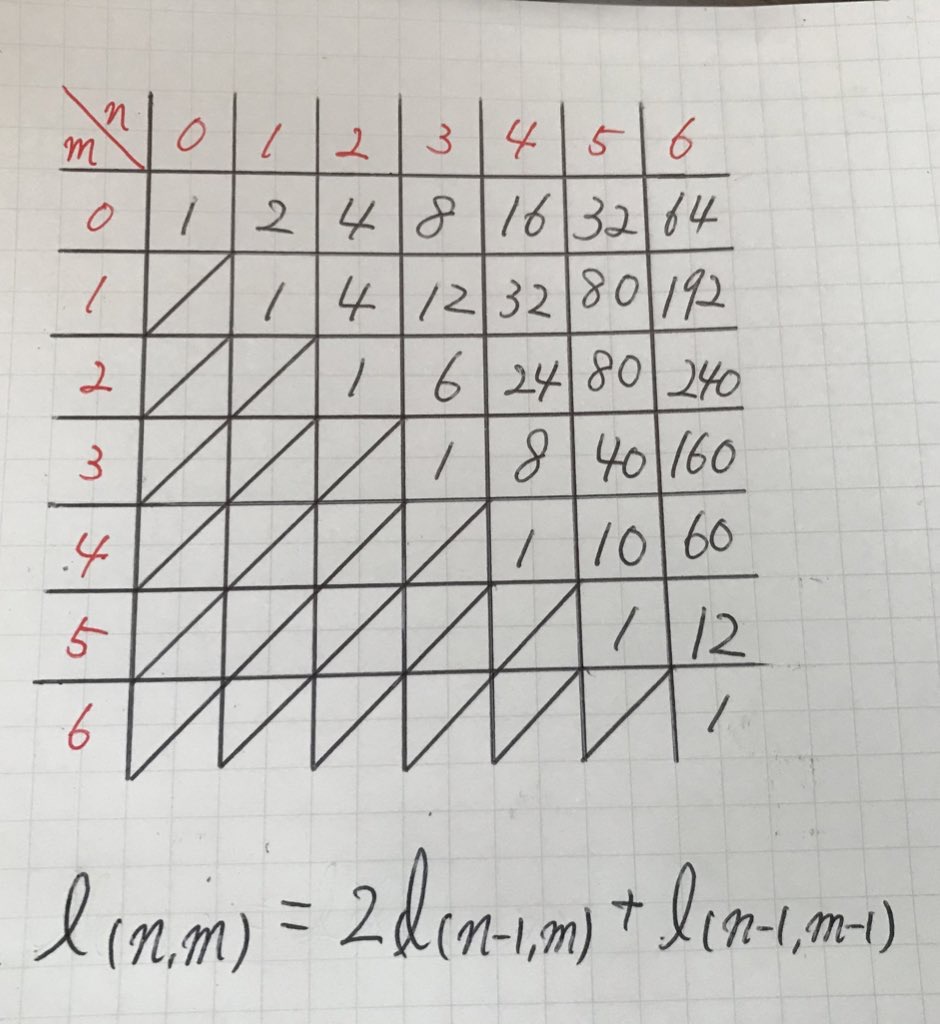 n 0 1 2 3 4 5 6
m
0 1 2 4 8 16 32 64
1 1 4 12 32 80 192
2 1 6 24 80 240
3 1 8 40 160
4 1 10 60
5 1 12
6 1
l(n,m) = 2l(n-1,m) + l(n-1,m-1)